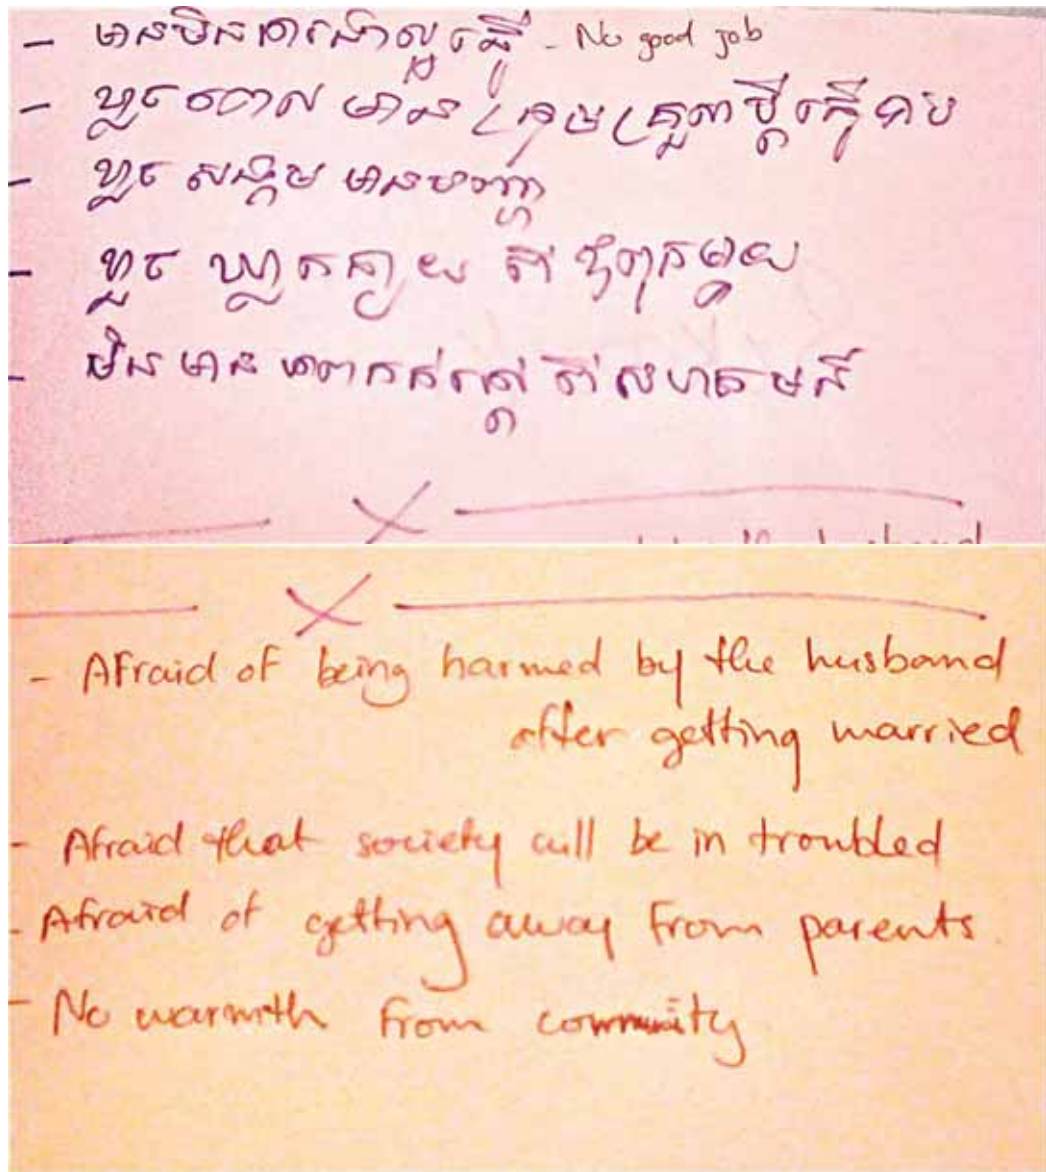 - មានមិនការងារល្អធ្វើ - No good job
- ខ្លាច ពេល មាន គ្រួសារ ប្ដីធ្វើបាប
- ខ្លាច សង្គម មានបញ្ហា
- ខ្លាច ឃ្លាតឆ្ងាយ ពី ឪពុកម្ដាយ
- មិន មាន ភាពកក់ក្ដៅ ពី សហគមន៍
- Afraid of being harmed by the husband
after getting married
- Afraid that society will be in troubled
- Afraid of getting away from parents.
- No warmth from community